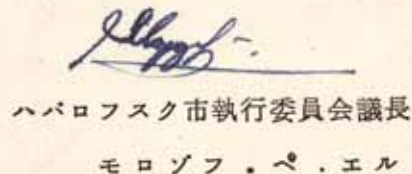 ハバロフスク市執行委員会議長
モロゾフ．ペ．エル